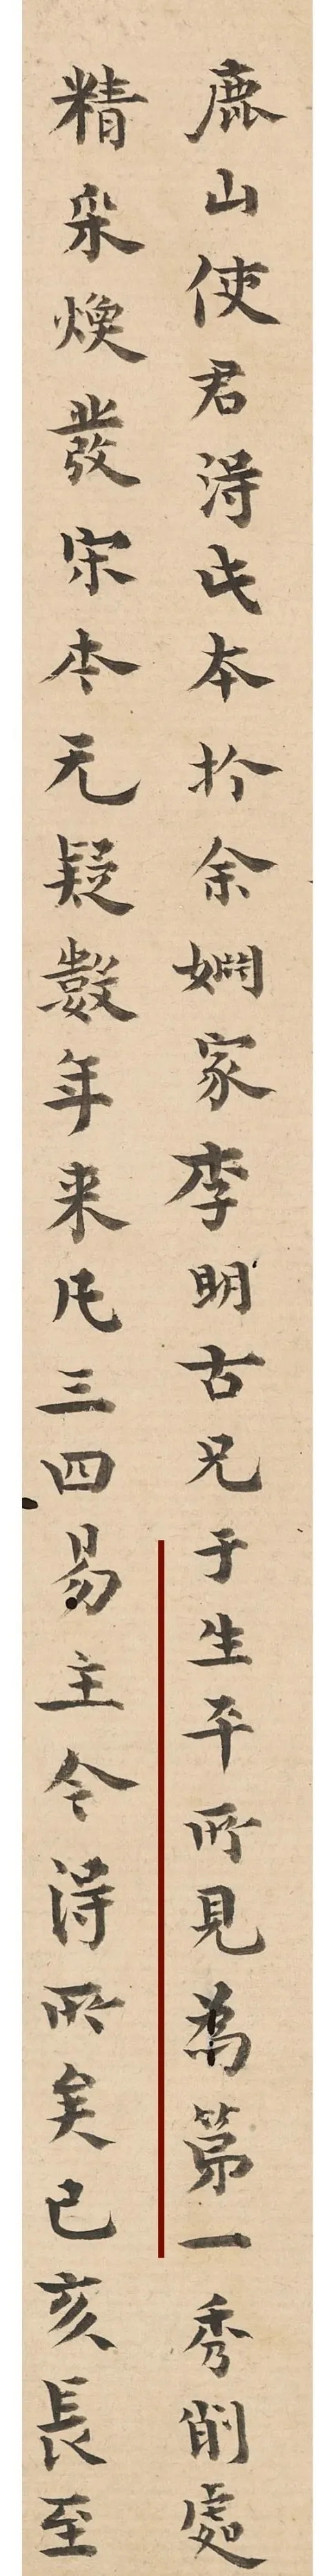 鹿山使君淂此本扵余嫻家李明古兄于生平所見為第一秀削處
精采煥發宋本无疑數年来凡三四易主今淂所矣己亥長至